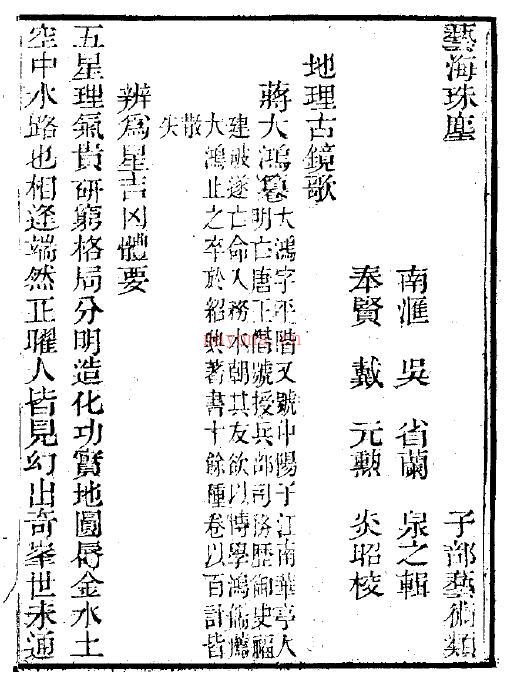 藝海珠塵 子部藝術類
南滙 吳 省蘭 泉之輯
奉賢 戴 元勲 炎昭校
地理古鏡歌
蔣大鴻
大鴻字平階又號中陽子江南華亭人
明亡唐王僭號授兵部司務歷御史福
建破遂亡命入務本朝其友欲以博學鴻儒薦
大鴻止之卒於紹興著書十餘種卷以百計皆
散
失
辨爲星吉凶體要
五星理氣貴硏窮格局分明造化功實地圓脣金水土
空中水路也相逢端然正曜人皆見幻出奇峯世未通